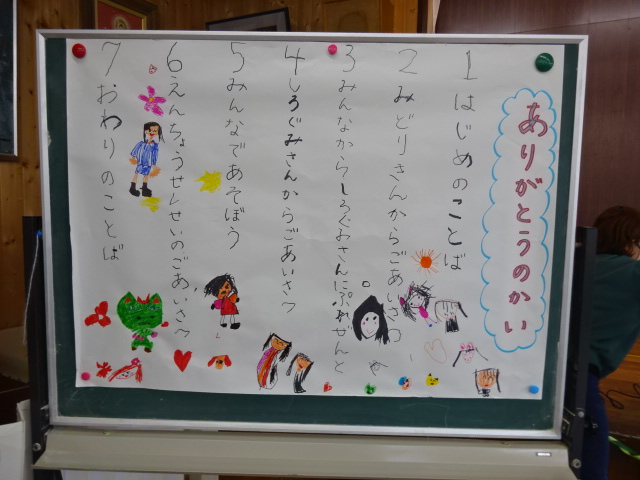 ありがとうのかい
1 はじめのことば
2 みどりさんからごあいさつ
3 みんなからしろぐみさんにぷれぜんと
4 しろぐみさんからごあいさつ
5 みんなであそぼう
6 えんちょうせんせいのごあいさつ
7 おわりのことば